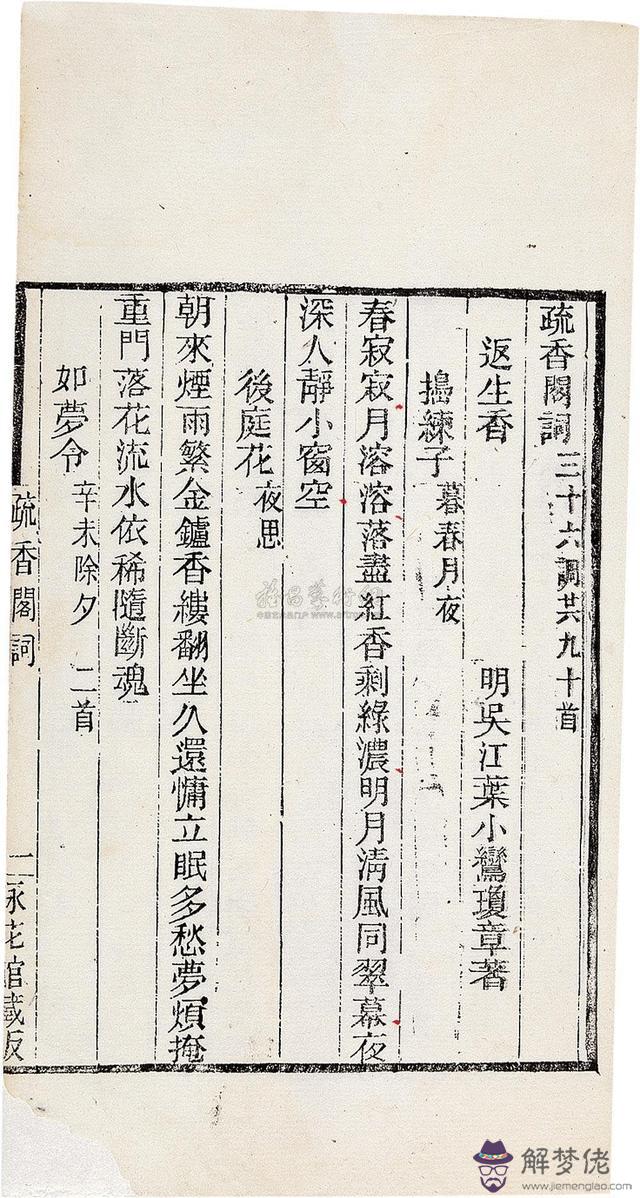 疏香閣詞三十六調共九十首
返生香
明吳江葉小鸞瓊章著
搗練子暮春月夜
春寂寂月溶溶落盡紅香剩綠濃明月清風同翠幕夜
深人靜小窗空
後庭花夜思
朝來煙雨繁金鑪香縷翻坐久還慵立眠多愁夢煩掩
重門落花流水依稀隨斷魂
如夢令辛未除夕 二首
疏香閣詞
二
花館藏板
解梦佬
www.jiemenglao.com